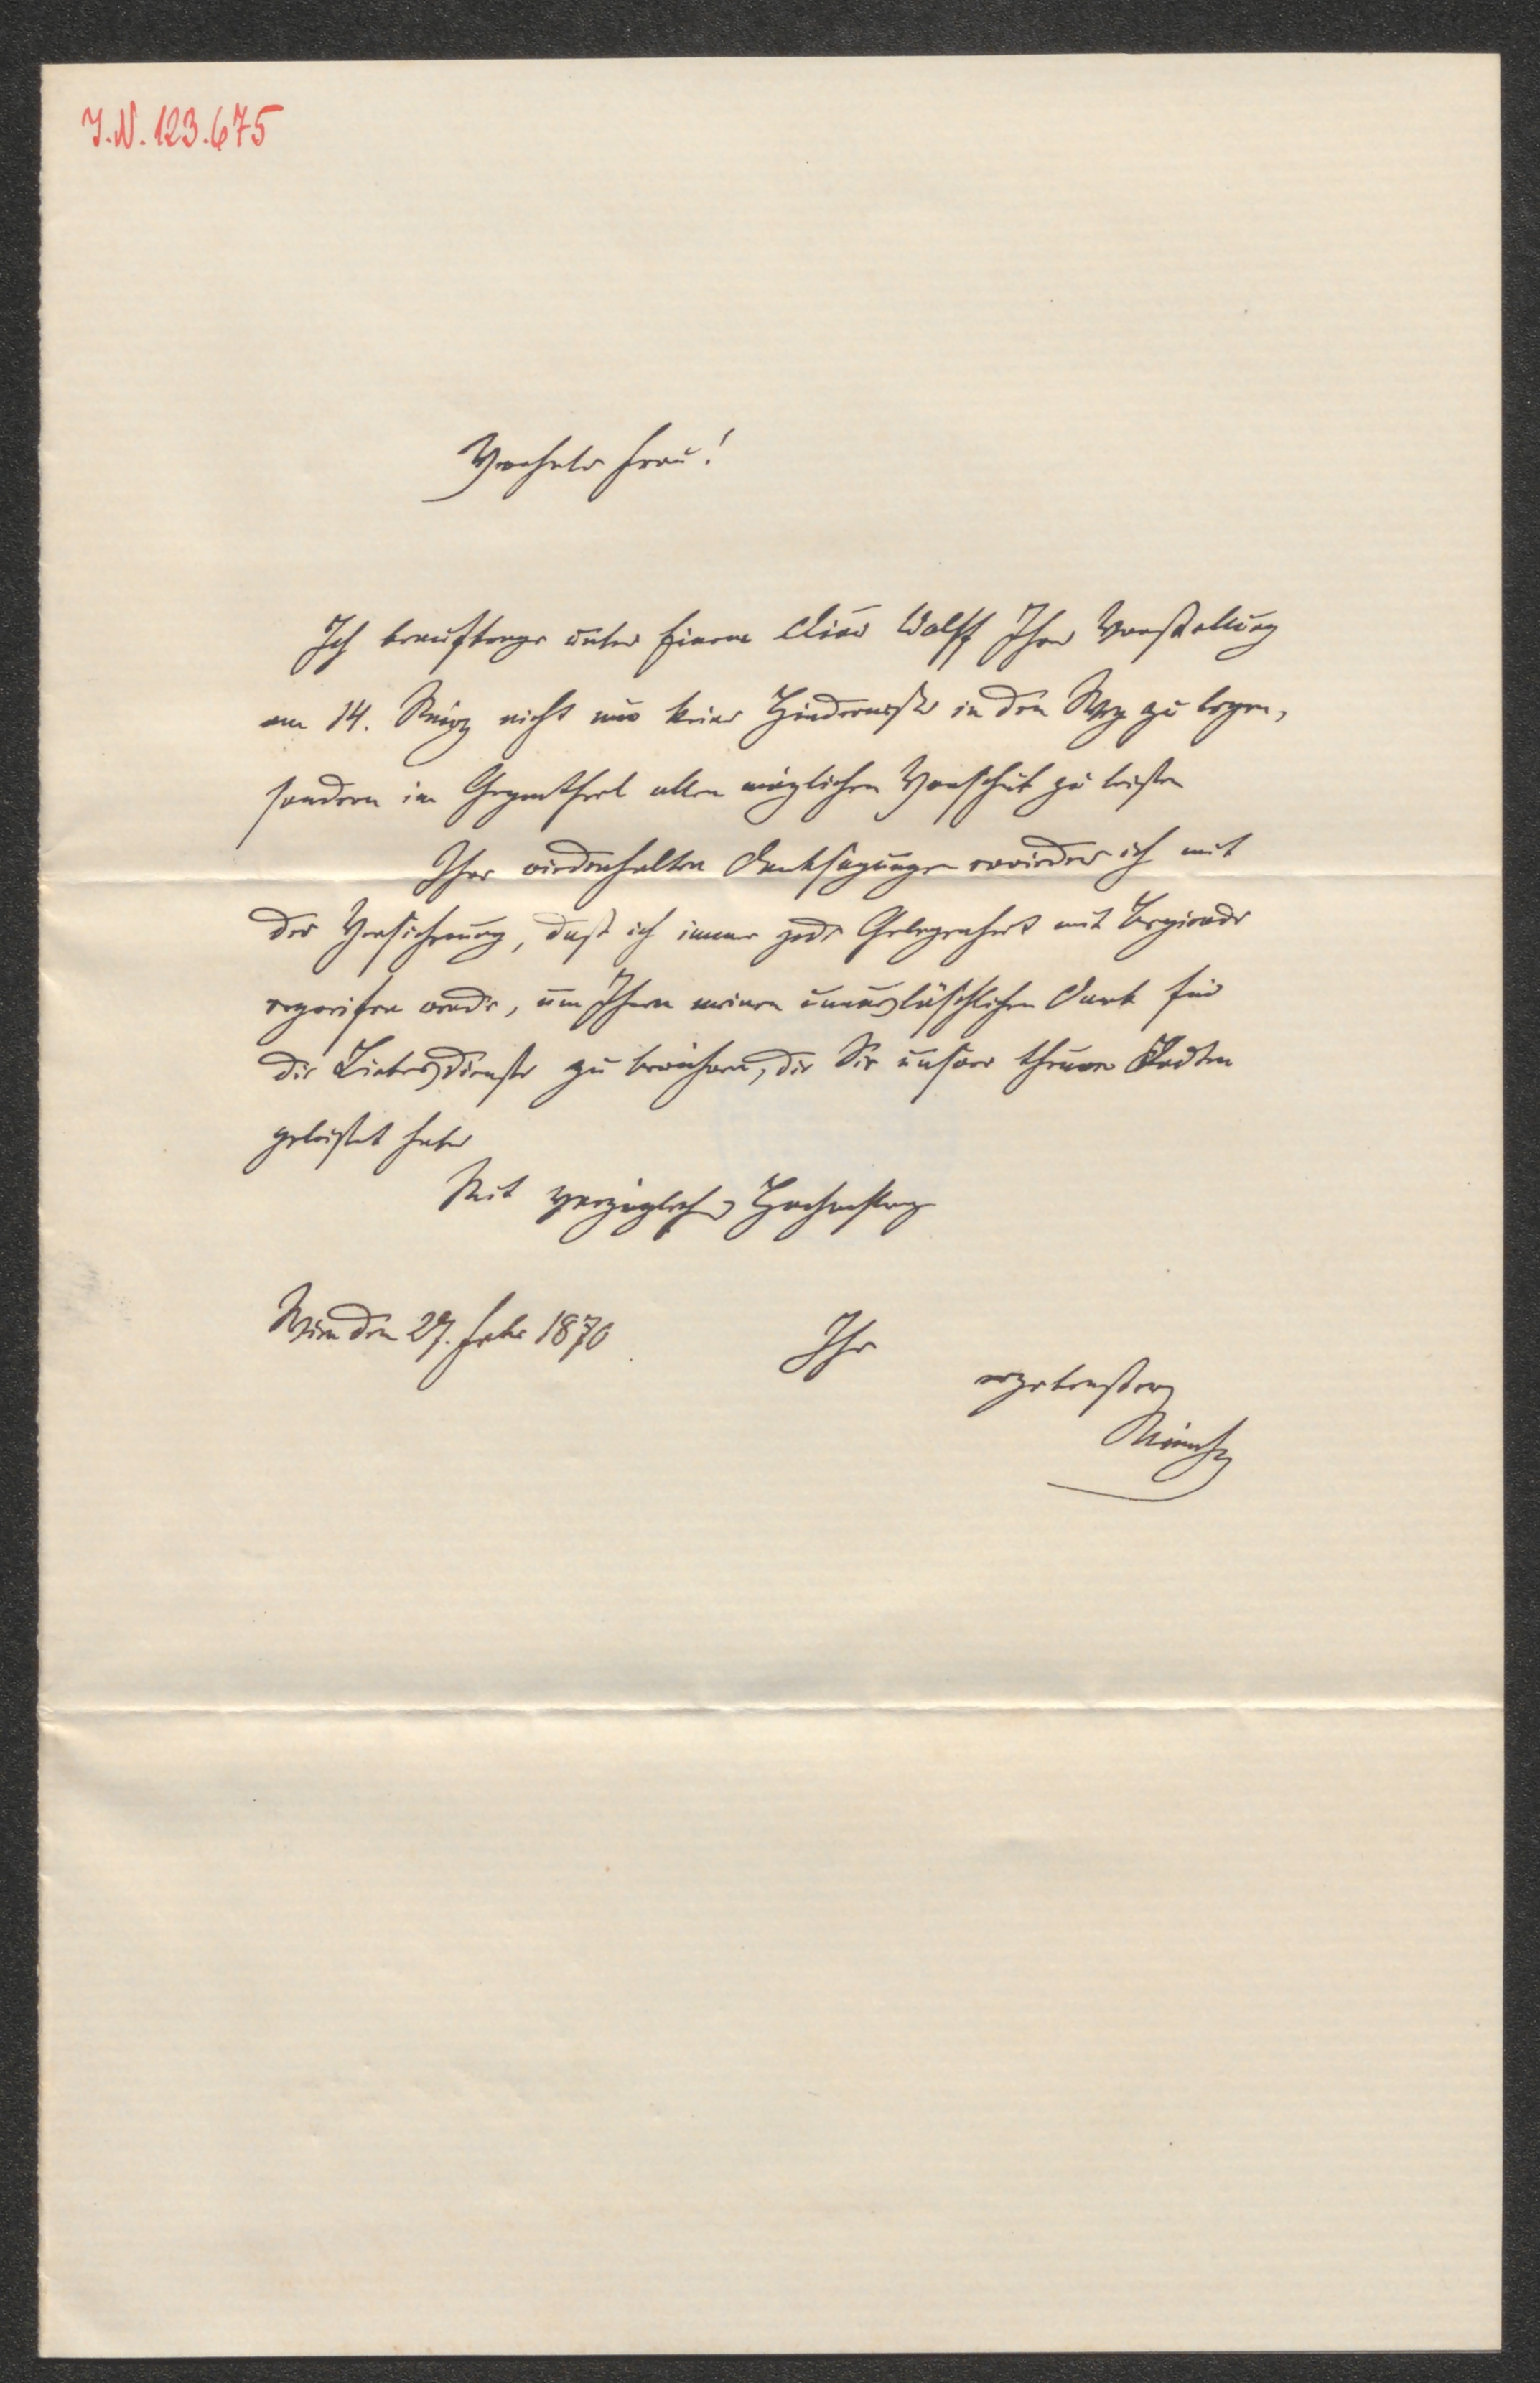 I.N. 123.675
Verehrte Frau!
Ich beauftrage unter Einem Wolff Ihrer Vorstellung
am 14. März nicht nur keine Hindernisse in den Weg zu legen,
sondern im Gegentheil allen möglichen Vorschub zu leisten
Ihre wiederholten Danksagungen erwiedere ich mit
der Versicherung, daß ich immer jede Gelegenheit mit Begierde
ergreifen werde, um Ihnen meinen unauslöschlichen Dank für
die Liebesdienste zu bewähren, die Sie unserer theuren Todten
geleistet haben
Mit vorzüglicher Hochachtung
Wien den 27. Febr 1870
Ihr
ergebenster
Münch